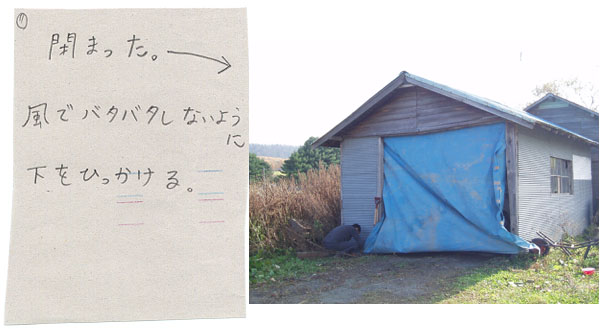 閉まった。→
風でバタバタしないように
下をひっかける。